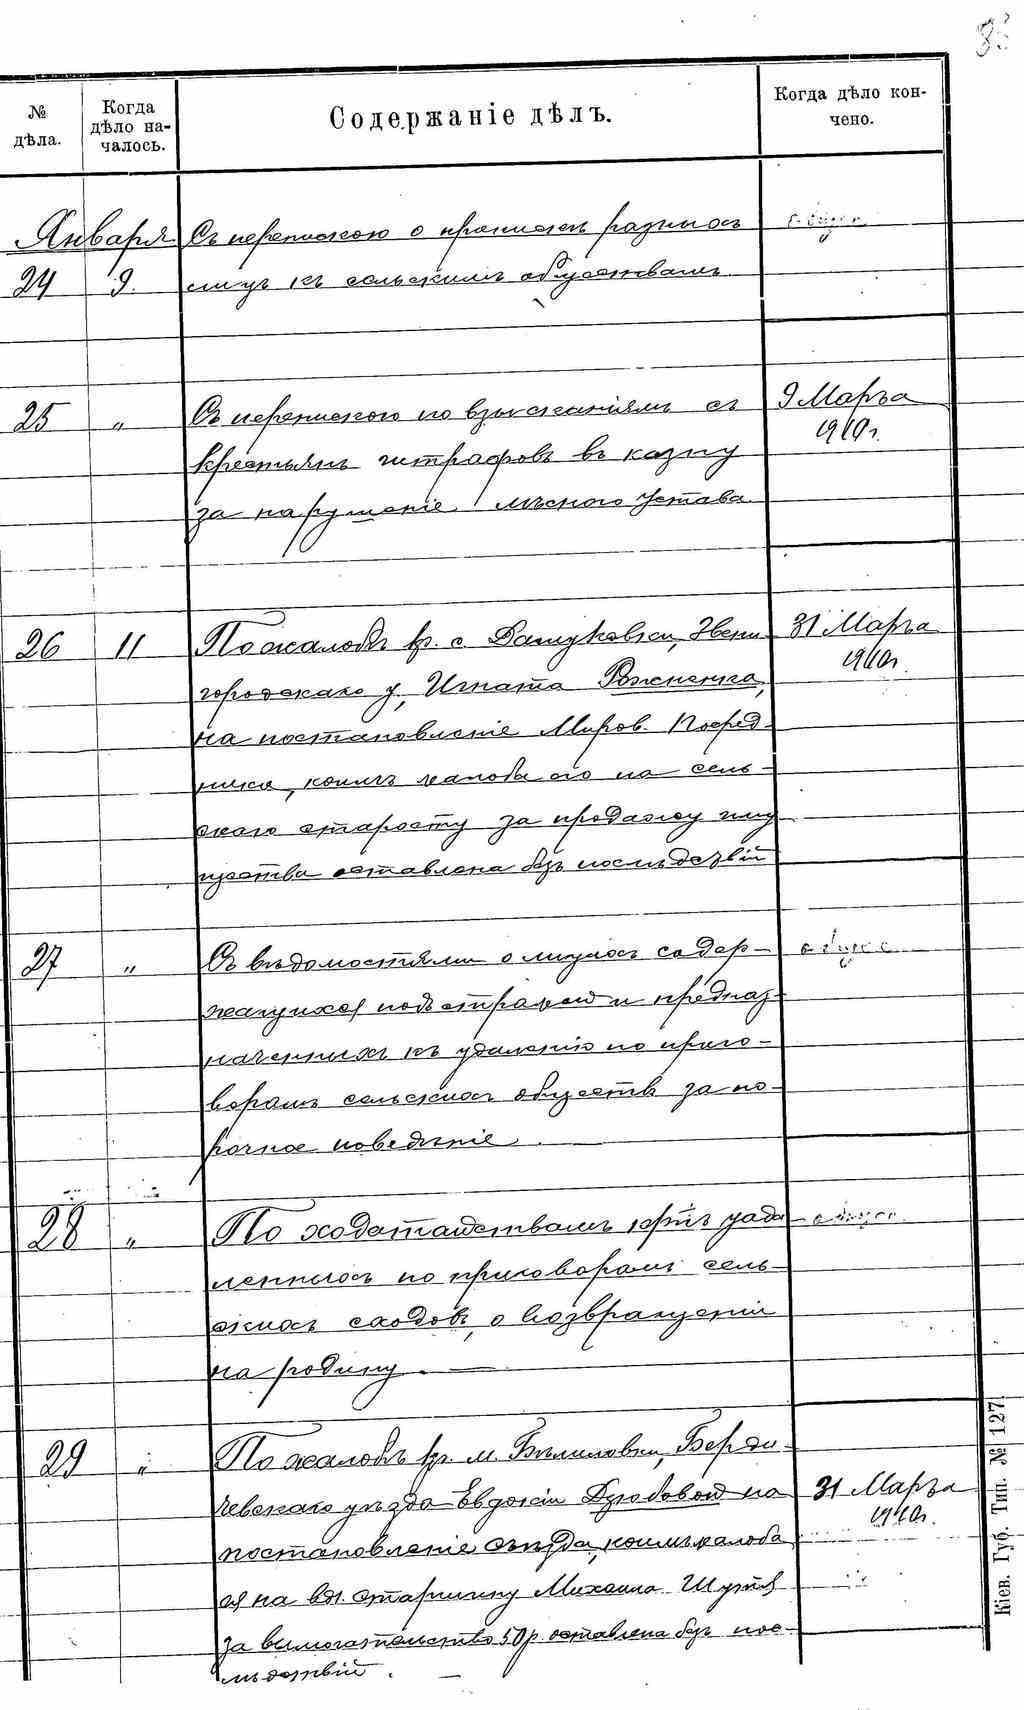 № дѣла.
Когда дѣло на-
чалось.
Содержаніе дѣлъ.
Когда дѣло кон-
чено.
Января
24 9. Съ перепискою о припискѣ разныхъ
лицъ къ сельскимъ обществамъ
25 „ Съ перепискою по взысканіямъ съ 9 Марта
крестьянъ штрафовъ въ казну 1910 г.
за нарушеніе лѣсного Устава
26 11 По жалобѣ кр. с. Дашуковки, Звени 31 Марта
городскаго у., Игната Рожненка, 1910 г.
на постановленіе Миров. Посред-
ника, коимъ жалоба его на сель-
скаго старосту за продажу иму
щества оставлена безъ послѣдствій
27 „ Съ вѣдомостями о лицахъ содер-
жащихся подъ стражей и предназ-
наченныхъ къ удаленію по приго-
ворамъ сельскихъ обществъ за по-
рочное поведѣніе.
28 „ По ходатайствамъ кр-нъ удал
ленныхъ по приговорамъ сель-
скихъ сходовъ, о возвращеніи
на родину. —
29 „ По жалобѣ кр. м. Бѣлиловки, Берди-
чевскаго уѣзда Евдокіи Дзюбовой на 31 Марта
постановленіе съѣзда, коимъ жалоба 1910 г.
ея на вол. старшину Михаила
за вымогательство 50 р. оставлена безъ пос-
лѣдствій. —
Кіев. Губ. Тип. № 127.